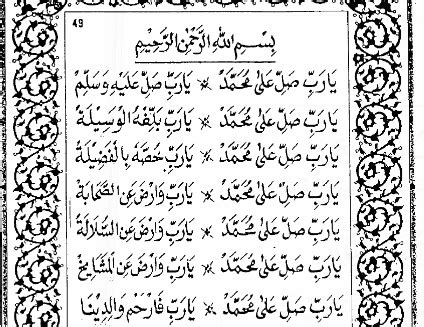 49
بِسْمِ اللهِ الرَّحْمٰنِ الرَّحِيْمِ
يَارَبِّ صَلِّ عَلىٰ مُحَمَّدْ ※ يَارَبِّ صَلِّ عَلَيْهِ وَسَلِّمْ
يَارَبِّ صَلِّ عَلىٰ مُحَمَّدْ ※ يَارَبِّ بَلِّغْهُ الْوَسِيْلَةْ
يَارَبِّ صَلِّ عَلىٰ مُحَمَّدْ ※ يَارَبِّ خُصَّهُ بِالْفَضِيْلَةْ
يَارَبِّ صَلِّ عَلىٰ مُحَمَّدْ ※ يَارَبِّ وَارْضَ عَنِ الصَّحَابَةْ
يَارَبِّ صَلِّ عَلىٰ مُحَمَّدْ ※ يَارَبِّ وَارْضَ عَنِ السُّلَالَةْ
يَارَبِّ صَلِّ عَلىٰ مُحَمَّدْ ※ يَارَبِّ وَارْضَ عَنِ الْمَشَايِخْ
يَارَبِّ صَلِّ عَلىٰ مُحَمَّدْ ※ يَارَبِّ فَارْحَمْ وَالِدِيْنَا